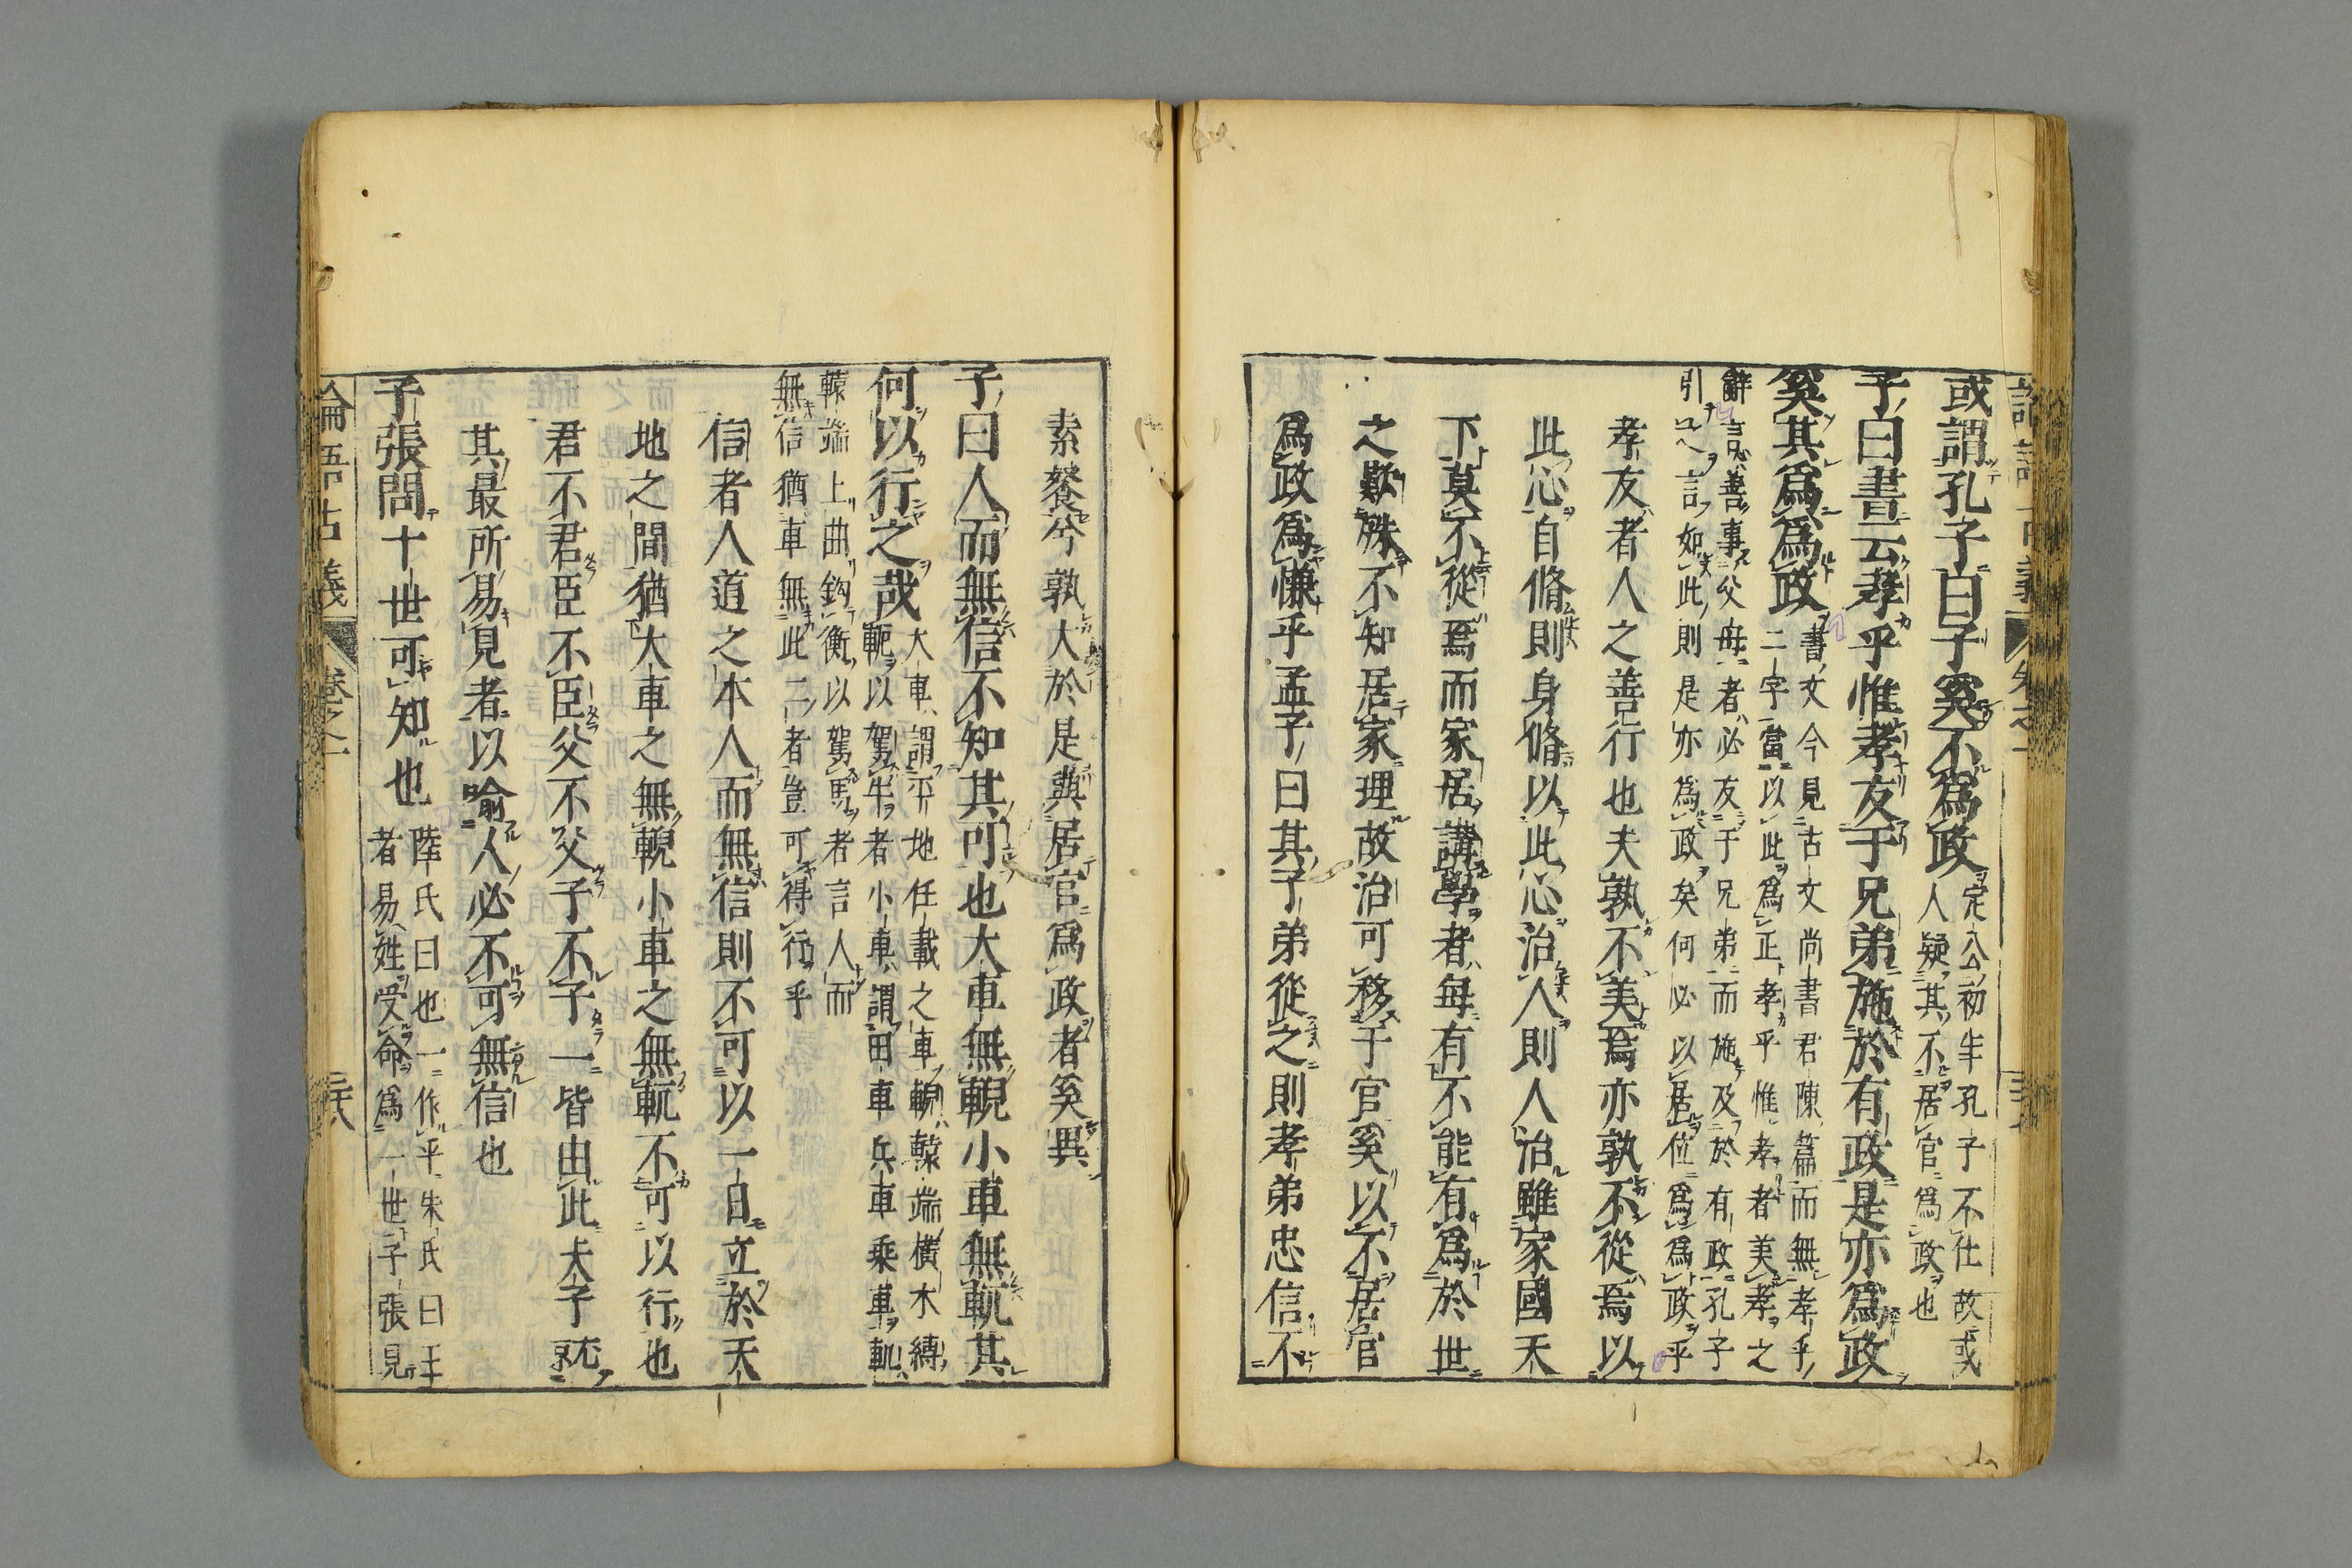 或謂孔子曰子奚不爲政
定公初年孔子不仕故或
人疑其不居官爲政也
子曰書云孝乎惟孝友于兄弟施於有政是亦爲政
奚其爲爲政
書文今見古文尚書君陳篇而無孝乎
二字當以此爲正孝乎惟孝者美孝之
辭言善事父母者必友于兄弟而施及於有政孔子
引之言如此則是亦爲政矣何必以居位爲爲政乎
孝友者人之善行也夫孰不美焉亦孰不從焉以
此心自脩則身脩以此心治人則人治雖家國天
下莫不從焉而家居講學者每有不能有爲於世
之歎殊不知居家理故治可移于官奚以不居官
爲政爲慊乎孟子曰其子弟從之則孝弟忠信不
素餐兮孰大於是與居官爲政者奚異
子曰人而無信不知其可也大車無輗小車無軏其
何以行之哉
大車謂平地任載之車輗轅端橫木縛
軛以駕牛者小車謂田車兵車乘車軏
轅端上曲鉤衡以駕馬者言人而
無信猶車無此二者豈可得行乎
信者人道之本人而無信則不可以一日立於天
地之間猶大車之無輗小車之無軏不可以行也
君不君臣不臣父不父子不子一皆由此夫子就
其最所易見者以喻人必不可無信也
子張問十世可知也
陸氏曰也一作乎朱氏曰王
者易姓受命爲一世子張見
論語古義 卷之一